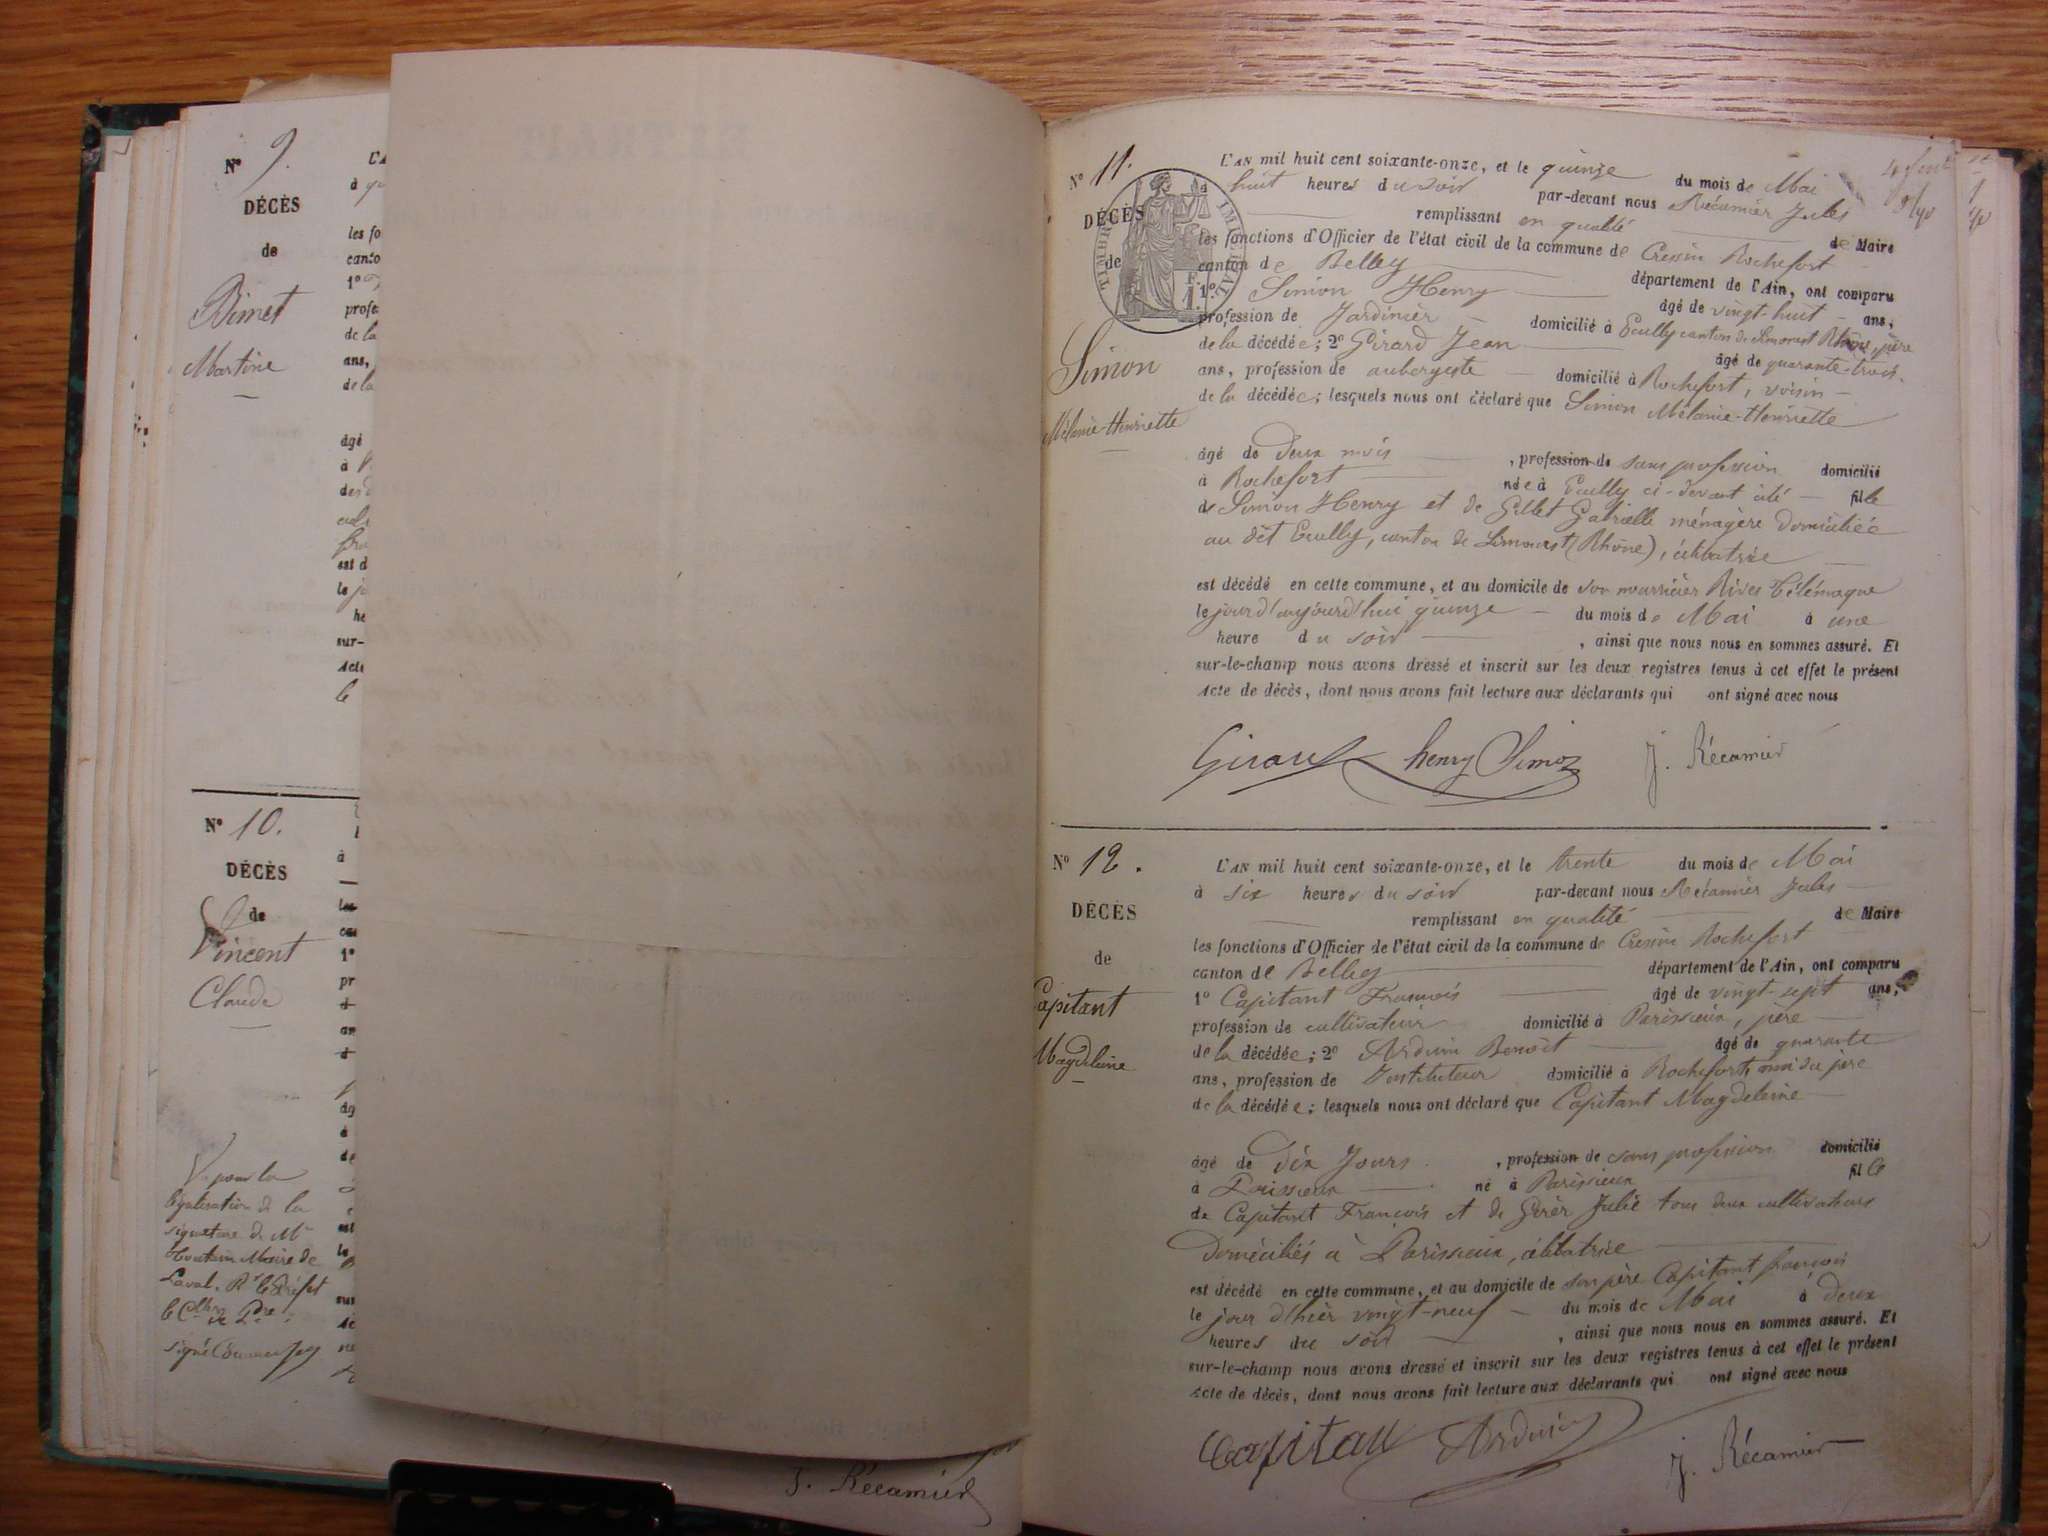 N° 9.
DÉCÈS
de
Bimet
Martine
L'A
à
les fo
canto
1°
profe
de la
ans,
de la
âgé
à
est d
le
he
sur-
Acte
le
N° 10.
DÉCÈS
de
Vincent
Claude
V. pour la
légalisation de la
signature de Mr
Maire de
Laval. Pr le Préfet
le Cller de Pre
signé
J. Récamier
N° 11.
DÉCÈS
de
Simon
Mélanie-Henriette
TIMBRE IMPÉRIAL
1 F.
L'AN mil huit cent soixante-onze, et le quinze du mois de Mai
à huit heures du soir par-devant nous Récamier Jules
remplissant en qualité de Maire
les fonctions d'Officier de l'état civil de la commune de Cressin Rochefort
canton de Belley département de l'Ain, ont comparu
1° Simon Henry âgé de vingt-huit ans,
profession de Jardinier domicilié à Ecully canton de Limonest Rhône, père
de la décédée; 2° Girard Jean âgé de quarante-trois
ans, profession de aubergiste domicilié à Rochefort, voisin
de la décédée; lesquels nous ont déclaré que Simon Mélanie-Henriette
âgé de deux mois, profession de sans profession domicilié
à Rochefort née à Ecully ci-devant cité fille
de Simon Henry et de Gillet Gabrielle ménagère domiciliée
au dit Ecully, canton de Limonest (Rhône), célibataire
est décédé en cette commune, et au domicile de son nourricier Rives Télémaque
le jour d'aujourd'hui quinze du mois de Mai à une
heure du soir, ainsi que nous nous en sommes assuré. Et
sur-le-champ nous avons dressé et inscrit sur les deux registres tenus à cet effet le présent
Acte de décès, dont nous avons fait lecture aux déclarants qui ont signé avec nous
Girard henry Simon J. Récamier
N° 12.
DÉCÈS
de
Capitant
Magdeleine
L'AN mil huit cent soixante-onze, et le trente du mois de Mai
à six heures du soir par-devant nous Récamier Jules
remplissant en qualité de Maire
les fonctions d'Officier de l'état civil de la commune de Cressin Rochefort
canton de Belley département de l'Ain, ont comparu
1° Capitant François âgé de vingt sept ans,
profession de cultivateur domicilié à Parissieux, père
de la décédée; 2° Arduin Benoît âgé de quarante
ans, profession de Instituteur domicilié à Rochefort, ami du père
de la décédée; lesquels nous ont déclaré que Capitant Magdeleine
âgé de dix Jours, profession de sans profession domicilié
à Parissieux né à Parissieux fille
de Capitant François et de Julie tous deux cultivateurs
Domiciliés à Parissieux, célibataire
est décédé en cette commune, et au domicile de son père Capitant françois
le jour d'hier vingt-neuf du mois de Mai à deux
heures du soir, ainsi que nous nous en sommes assuré. Et
sur-le-champ nous avons dressé et inscrit sur les deux registres tenus à cet effet le présent
Acte de décès, dont nous avons fait lecture aux déclarants qui ont signé avec nous
Capitan Arduin J. Récamier